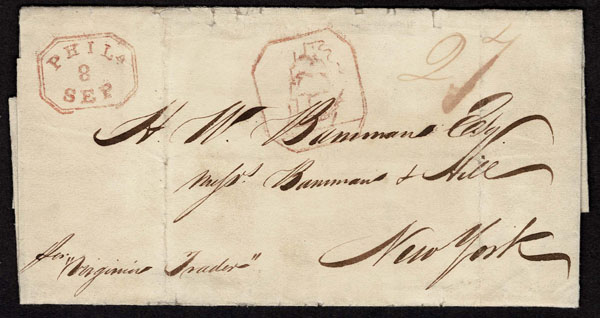 PHILA
8
SEP
27
H. W. Bammans Esq.
Messrs. Bammans & Hill
New York
Per "Virginia Trader"